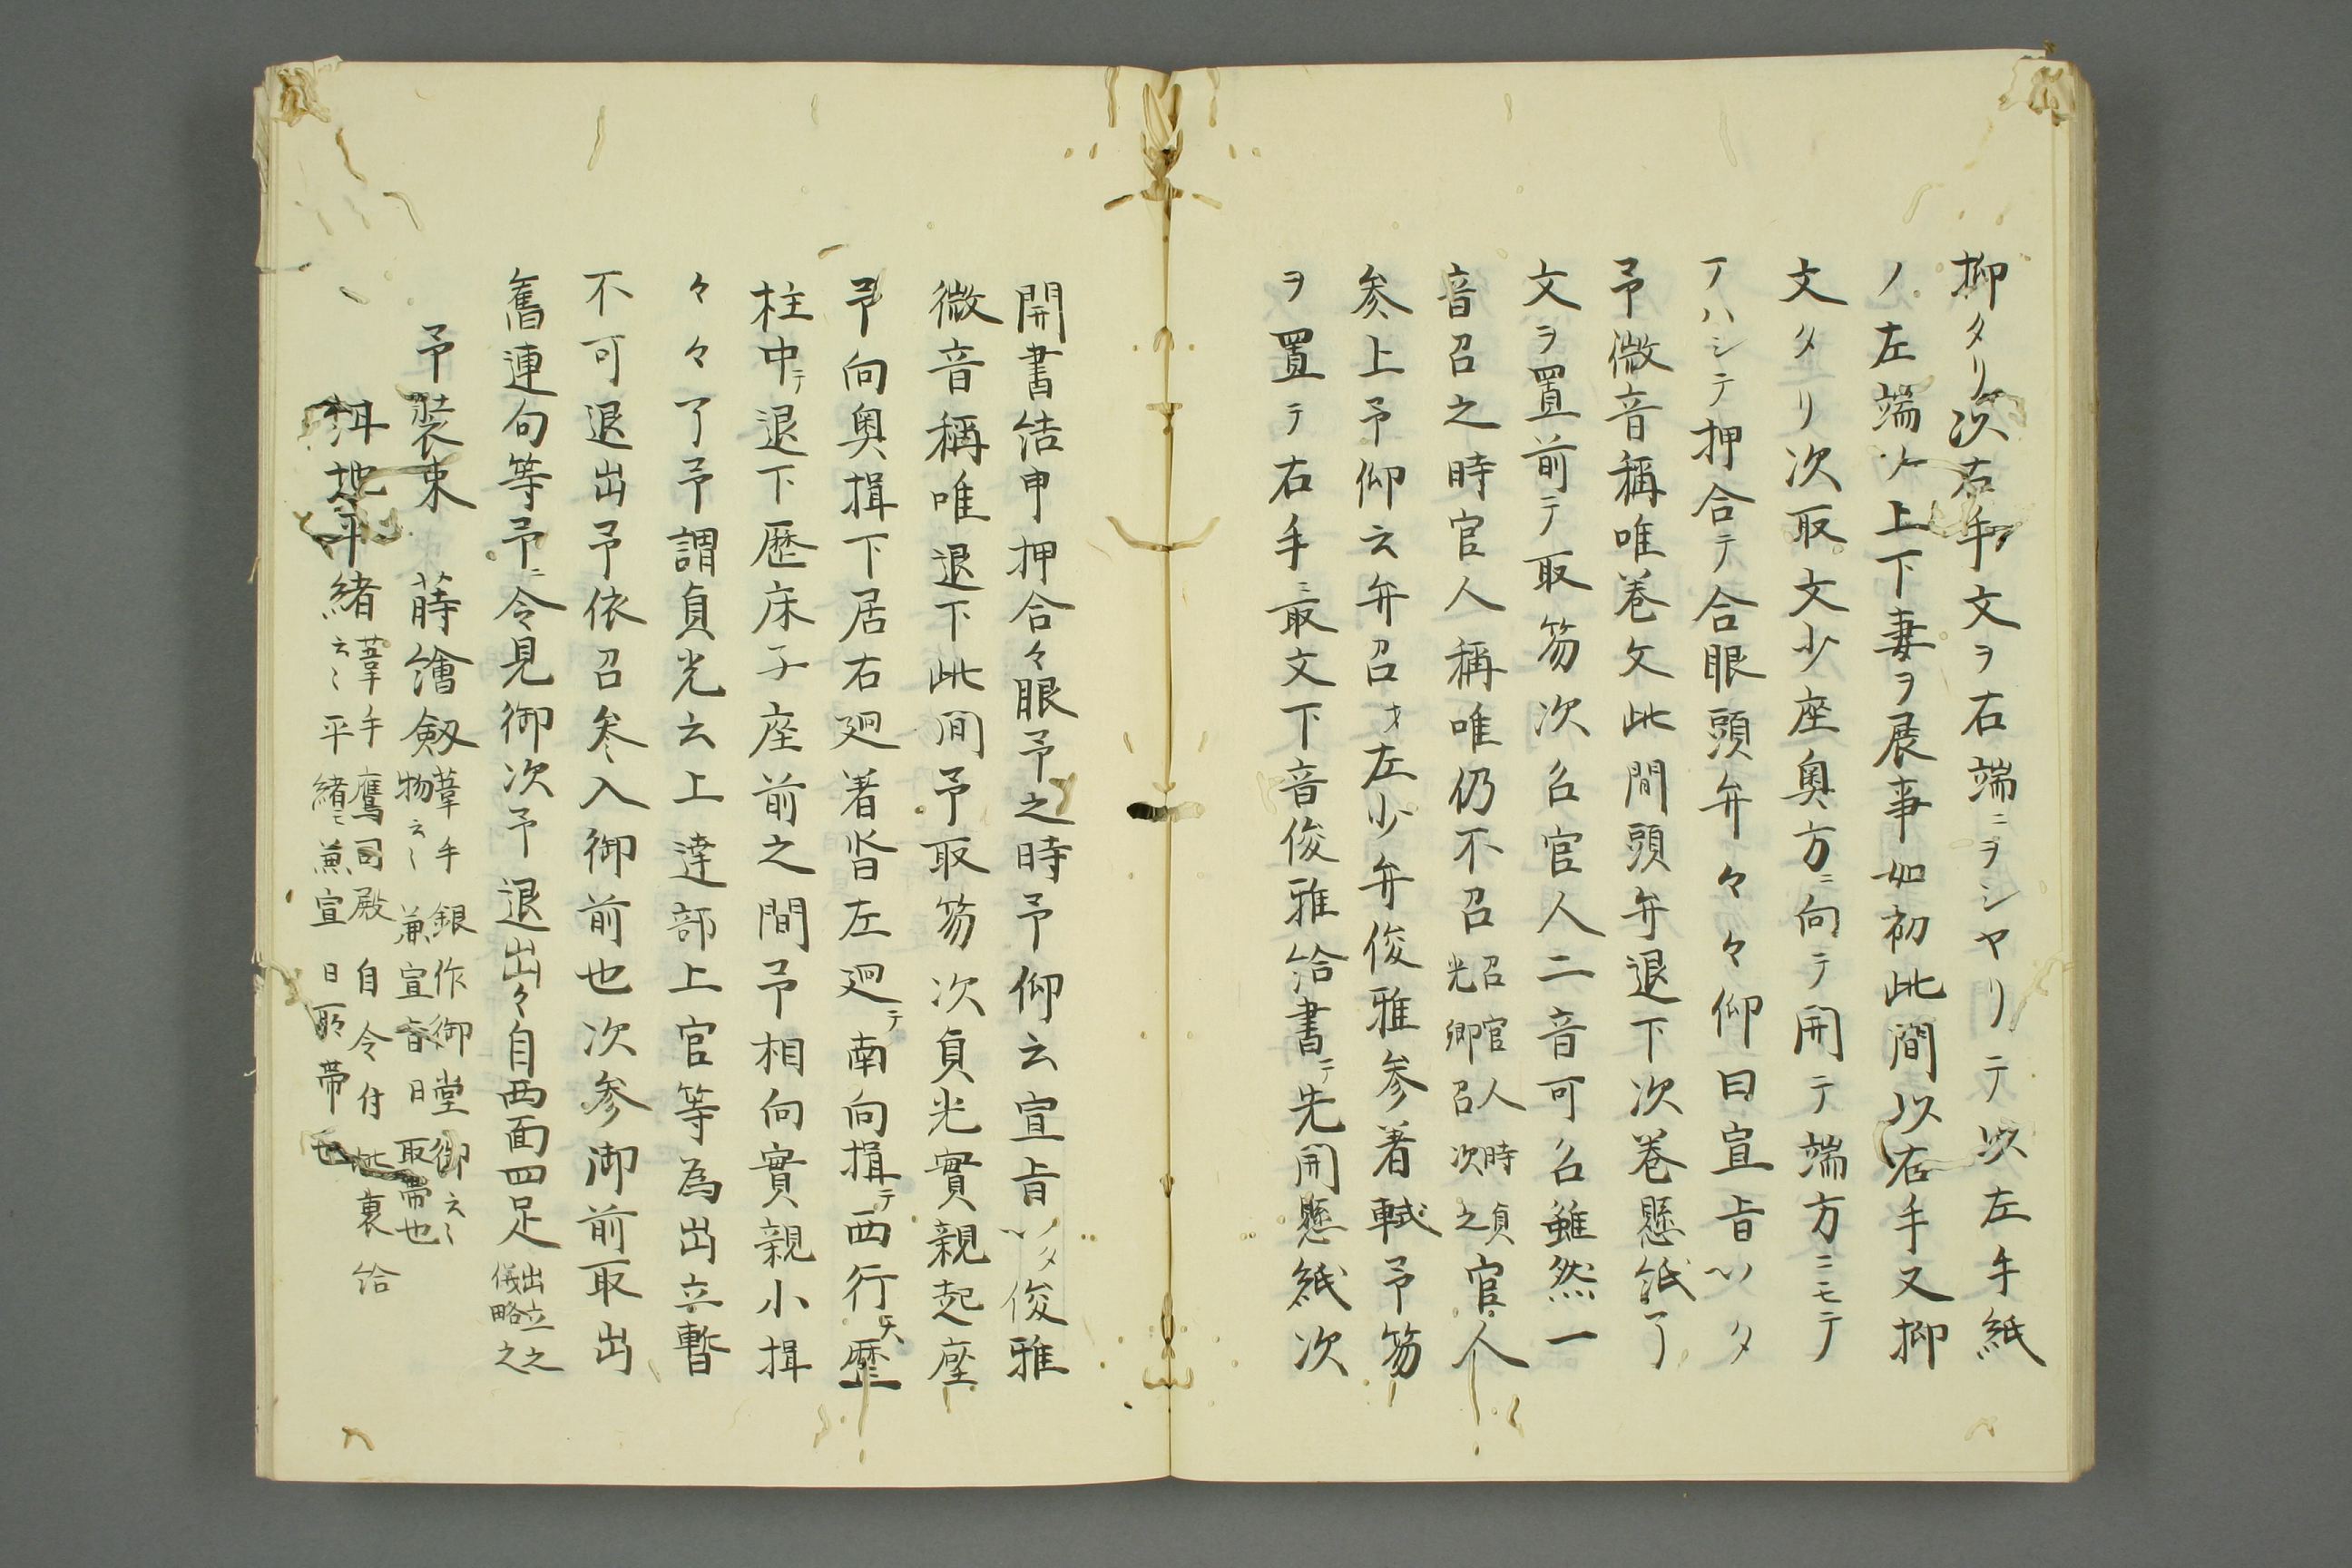 抑タリ次右手文ヲ右端ニヲシヤリテ以左手紙
ノ左端ヲ上下妻ヲ展事如初此間以右手又抑
文タリ次取文少座奥方ニ向テ開テ端方ニモテ
アハシテ押合テ合眼頭弁々々仰曰宣旨ツタ
予微音稱唯巻文此間頭弁退下次巻懸紙了
文ヲ置前テ取笏次召官人二音可召雖然一
音召之時官人稱唯仍不召召官人時貞光卿召次之官人
参上予仰云弁召才左少弁俊雅参著軾予笏
ヲ置テ右手ニ取文下音俊雅給書テ先開懸紙次
開書結申押合々眼予之時予仰云宣旨ツタ俊雅
微音稱唯退下此間予取笏次貞光實親起座
予向奥揖下居右廻著沓左廻テ南向揖テ西行天歴
柱中テ退下歴床子座前之間予相向實親小揖
々々了予謂貞光云上達部上官等為出立暫
不可退出予依召参入御前也次参御前取出
舊連句等予ニ令見御次予退出々自西面四足出立之儀略之
予装束 蒔繪劔葦手銀作御堂御物云々兼宣旨日取帯也
緒葦手鷹司殿自令付此裏給云々平緒モ兼宣日所帯也